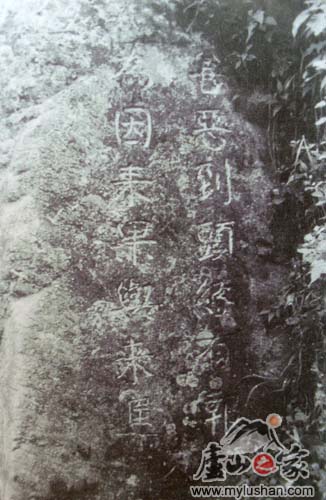 惡到頭終有
因未果與來
庐山之家
www.mylushan.com